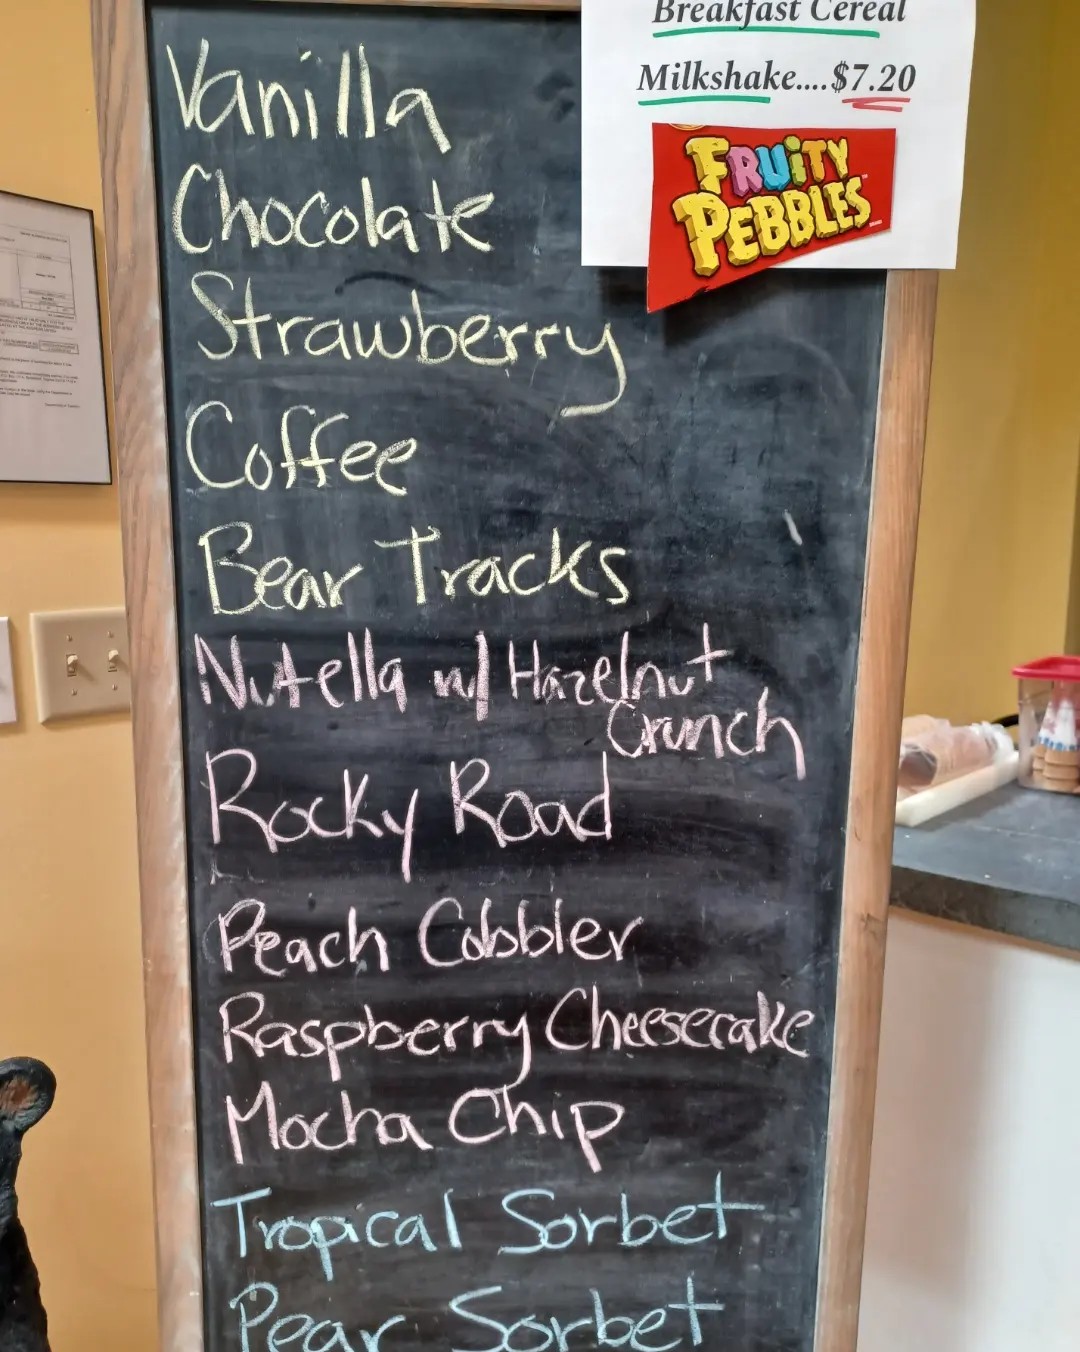 Breakfast Cereal
Milkshake....$7.20
FRUiTY
PEBBLES
Vanilla
Chocolate
Strawberry
Coffee
Bear Tracks
Nutella w/ Hazelnut
Crunch
Rocky Road
Peach Cobbler
Raspberry Cheesecake
Mocha Chip
Tropical Sorbet
Pear Sorbet